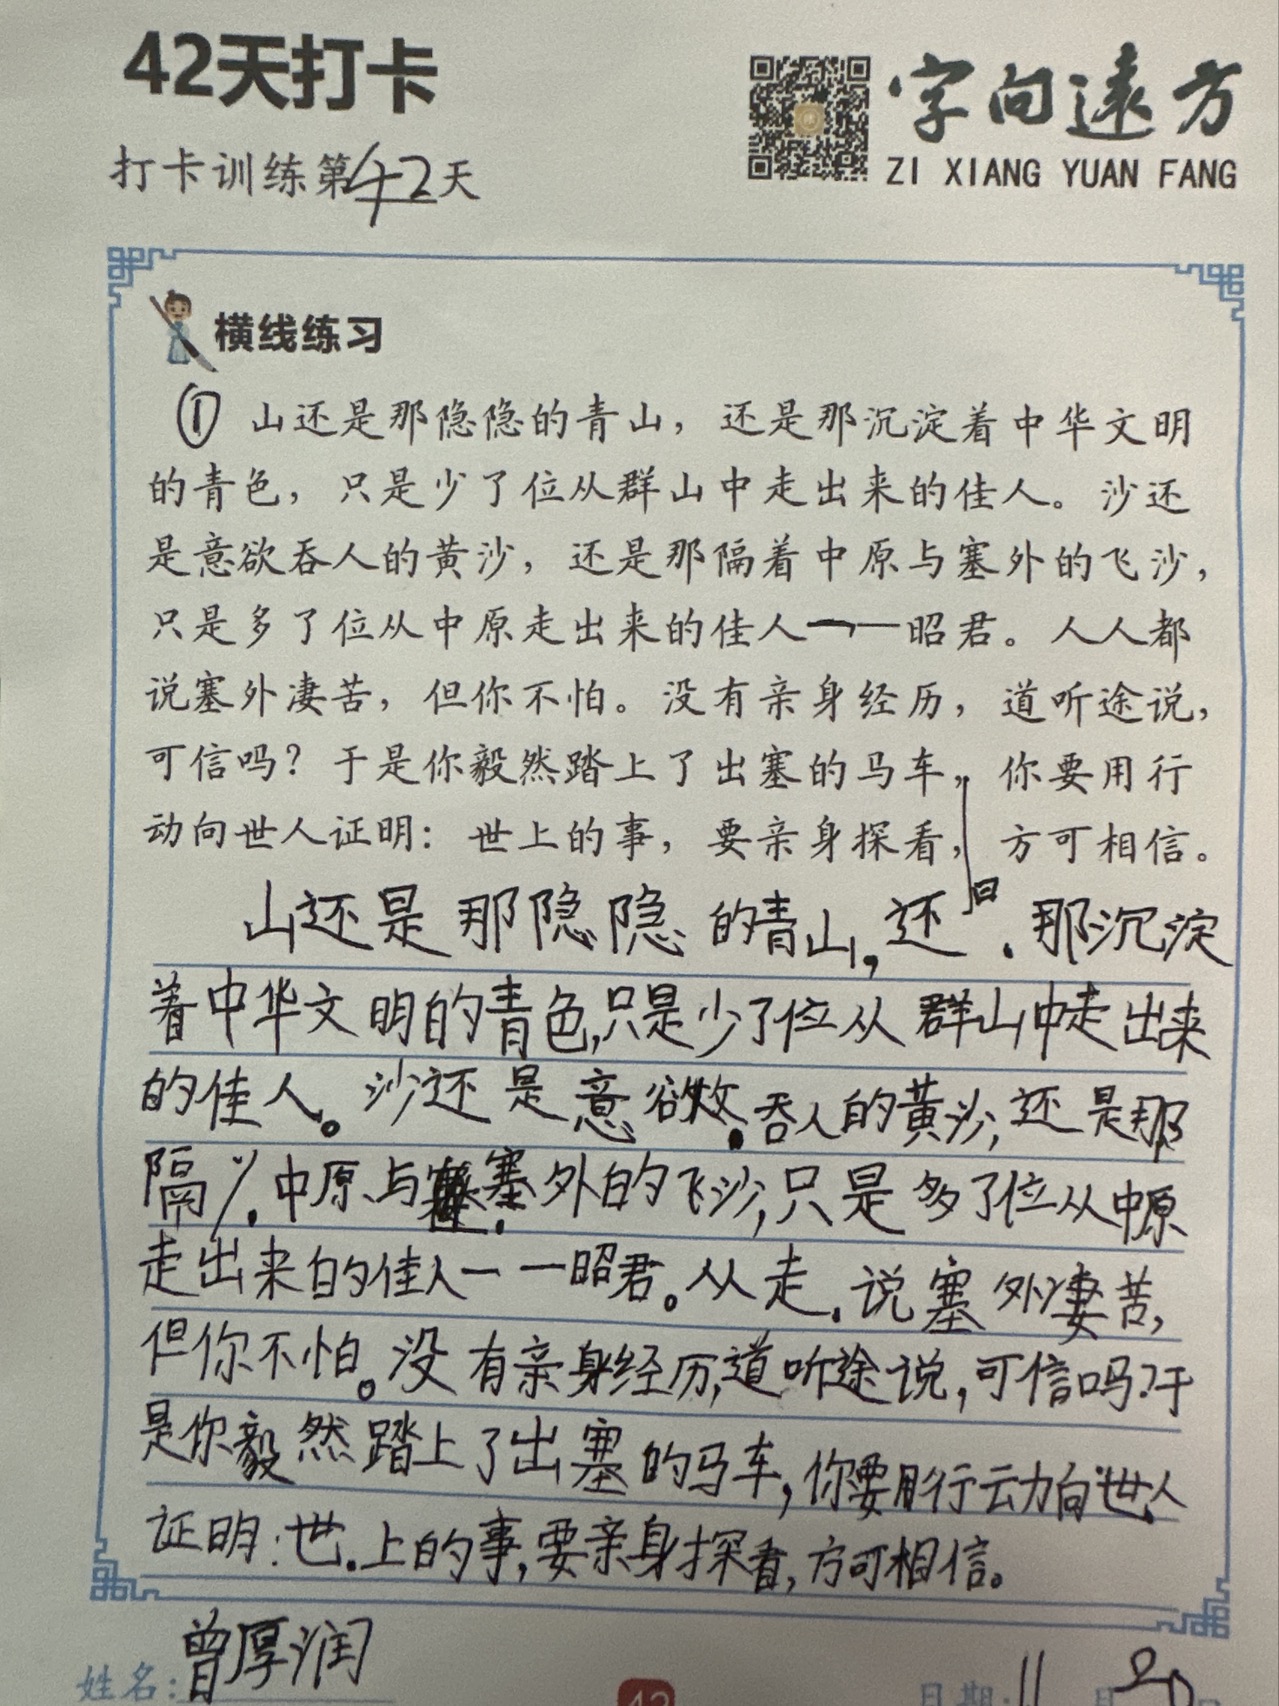 42天打卡
字向远方
ZI XIANG YUAN FANG
打卡训练第42天
横线练习
① 山还是那隐隐的青山，还是那沉淀着中华文明
的青色，只是少了位从群山中走出来的佳人。沙还
是意欲吞人的黄沙，还是那隔着中原与塞外的飞沙，
只是多了位从中原走出来的佳人——昭君。人人都
说塞外凄苦，但你不怕。没有亲身经历，道听途说，
可信吗？于是你毅然踏上了出塞的马车，你要用行
动向世人证明：世上的事，要亲身探看，方可相信。
山还是那隐隐的青山，还 . 那沉淀
着中华文明的青色，只是少了位从群山中走出来
的佳人。沙还是意欲 . 吞人的黄沙，还是那
隔 . 中原与 . 塞外的飞沙，只是多了位从中原
走出来的佳人一一昭君。从走 . 说塞外凄苦，
但你不怕。没有亲身经历，道听途说，可信吗？于
是你毅然踏上了出塞的马车，你要用行动向世人
证明：世 . 上的事，要亲身探看，方可相信。
姓名：曾厚润
42
日期：11月